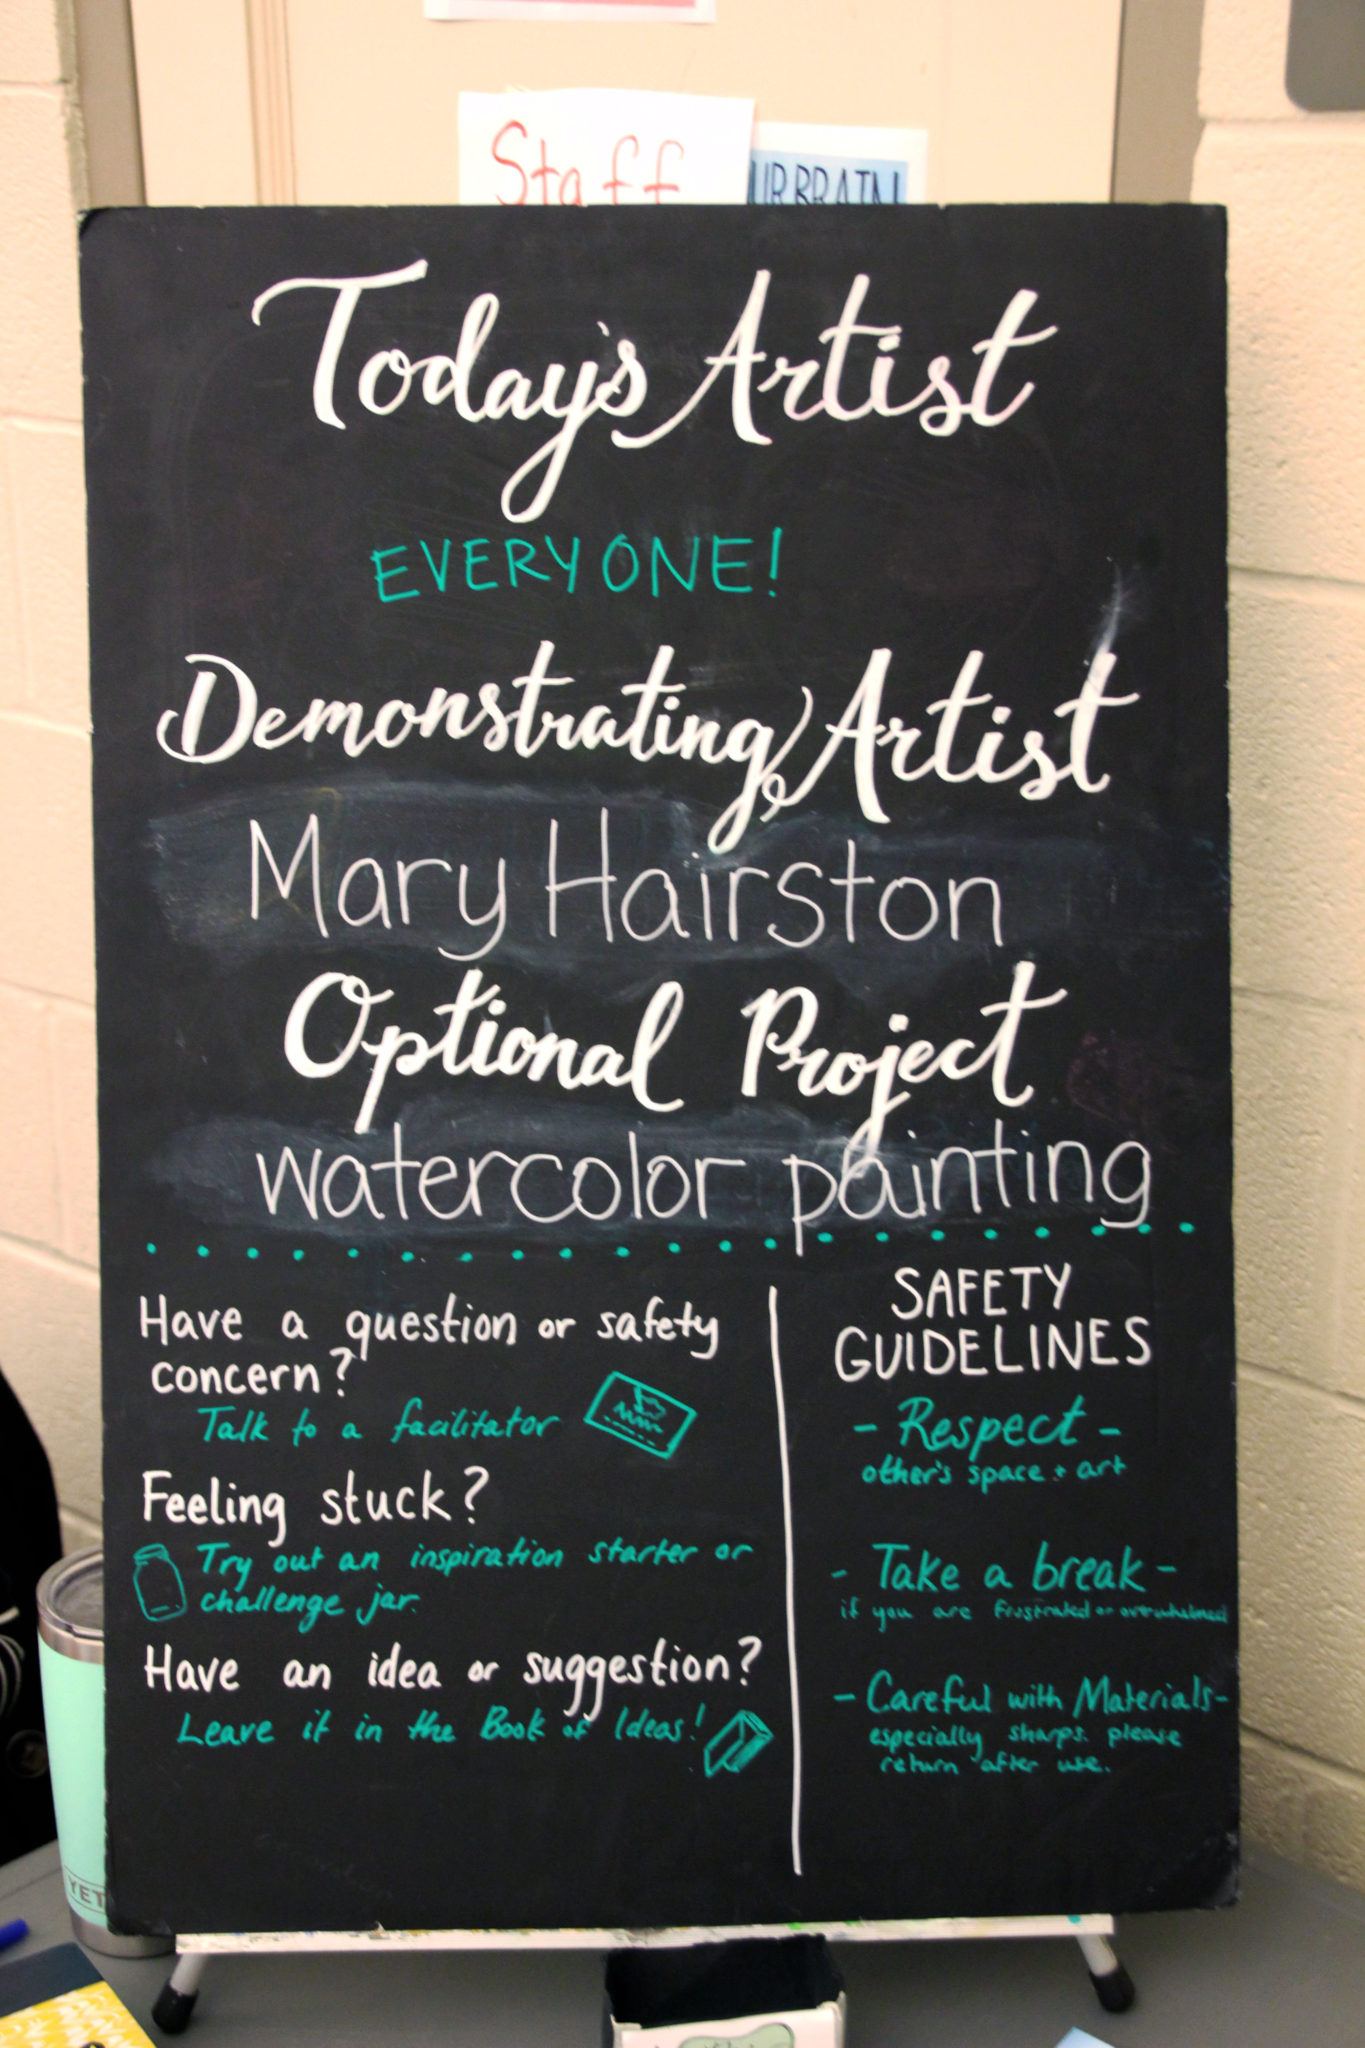 Staff
UR BRAIN
Today's Artist
EVERYONE!
Demonstrating Artist
Mary Hairston
Optional Project
watercolor painting
Have a question or safety
concern?
Talk to a facilitator
Feeling stuck?
Try out an inspiration starter or
challenge jar.
Have an idea or suggestion?
Leave it in the Book of Ideas!
SAFETY
GUIDELINES
- Respect -
other's space + art
- Take a break -
if you are frustrated or overwhelmed
- Careful with Materials -
especially sharps. please
return after use.
YET